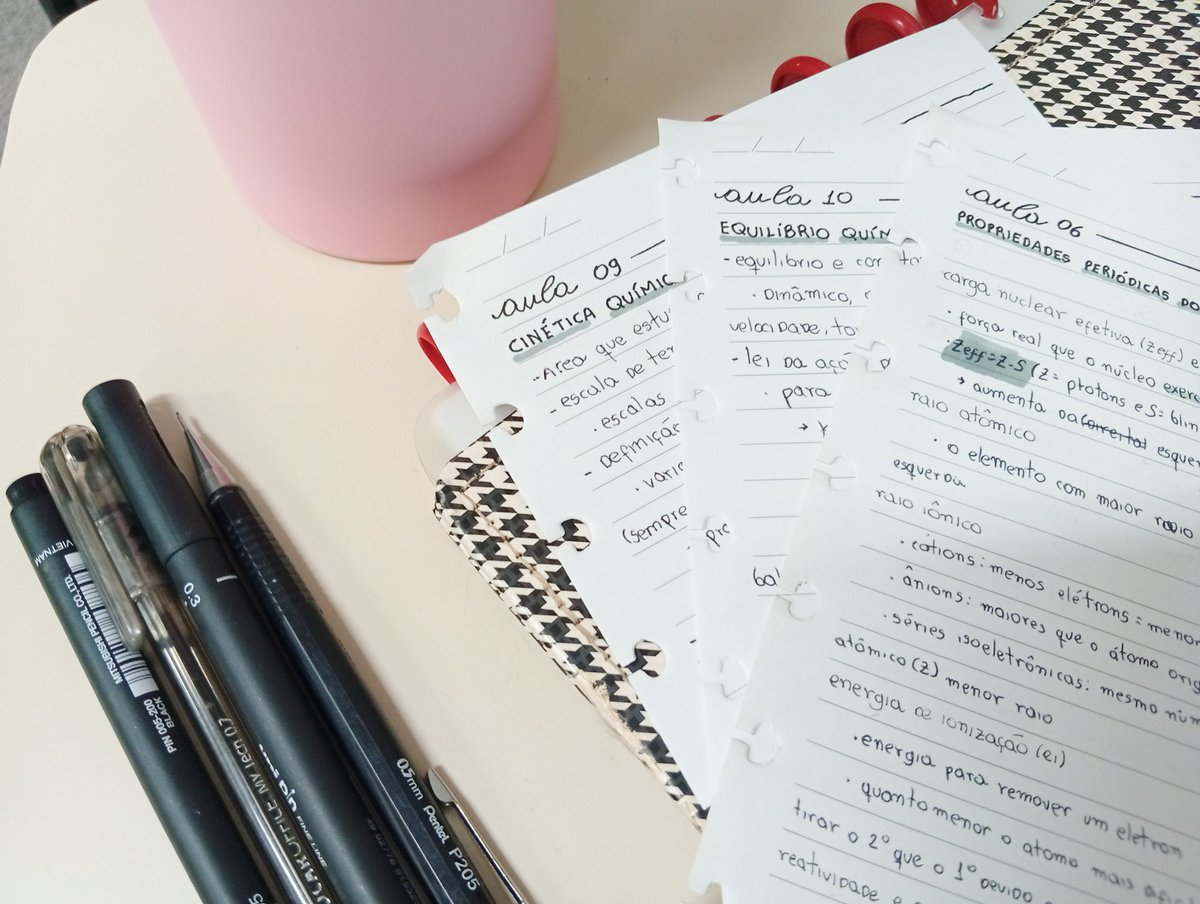 aula 09
CINÉTICA QUÍMIC
• Area que estu
- escala de te
• escalas
- Definição
• vari
(sempre
aula 10
EQUILÍBRIO QUÍM
- equilibrio e con
• Dinâmico,
velocidade, to
- lei da açã
• para
pre
bal
aula 06
PROPRIEDADES PERIÓDICAS DO
carga nuclear efetiva (zeff) e
• força real que o núcleo exer
• Zeff=Z-S (Z= prótons e S= blin
→ aumenta da esquer
raio atômico
• o elemento com maior raio
esquerda
raio iônico
• cátions: menos elétrons = menor
• ânions: maiores que o átomo orig
• séries isoeletrônicas: mesmo núm
atômico (z) menor raio
energia de ionização (ei)
• energia para remover um elétron
• quanto menor o atomo mais
tirar o 2º que o 1º devido
reatividade
VIETNAM
MITSUBISHI PENCIL CO.,LTD.
PIN 005-200
BLACK
My Tecn 0.7
0.3
FINE LINE
0.5mm Pentel P205